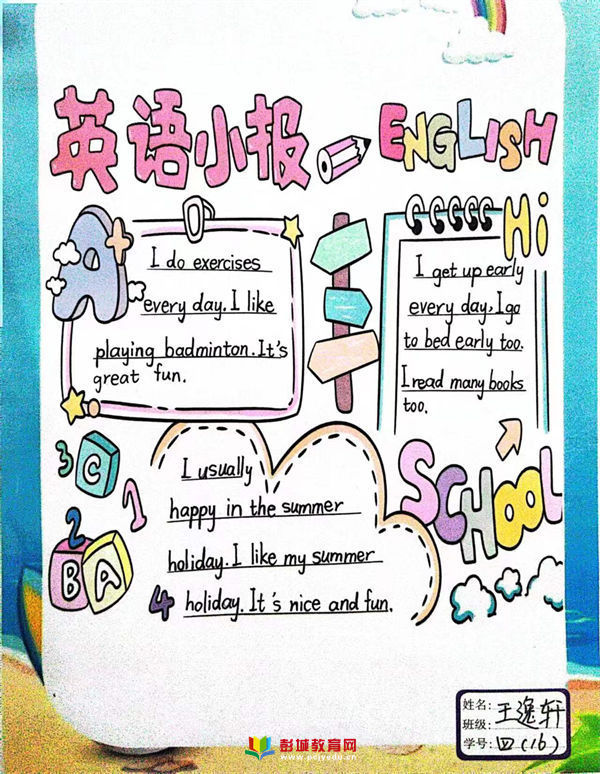 英语小报
ENGLISH
A
I do exercises
every day. I like
playing badminton. It's
great fun.
Hi
I get up early
every day, I go
to bed early too.
I read many books
too.
3
C
1
2
B
A
4
I usually
happy in the summer
holiday. I like my summer
holiday. It's nice and fun.
SCHOOL
姓名: 王逸轩
班级:
学号: 四(16)
彭城教育网
www.pcjyedu.cn